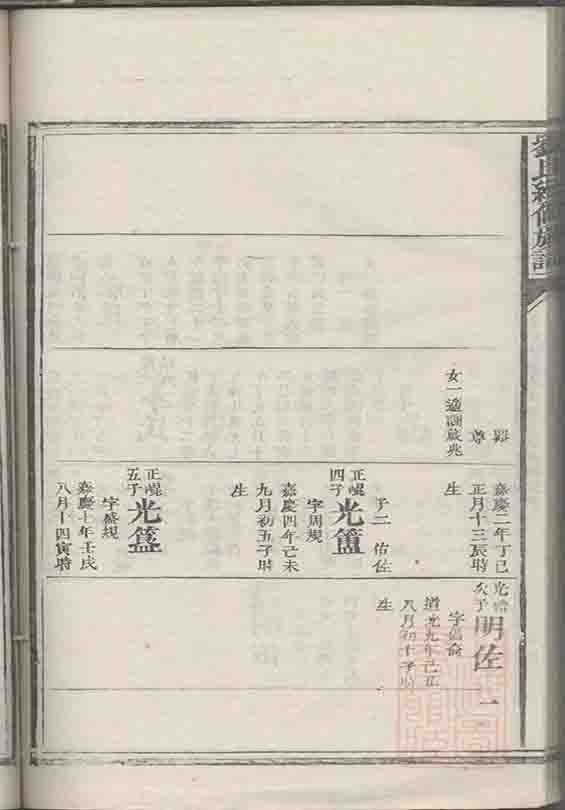 劉氏續修族譜
尊
女一適謝啟兆
嘉慶二年丁巳
正月十三辰時
生
子二 佑佐
正崐四子 光簠
字周規
嘉慶四年己未
九月初五子時
生
正崐五子 光簋
字盛規
嘉慶七年壬戌
八月十四寅時
次子 明佐 一
道光九年己丑
八月初十子時
生